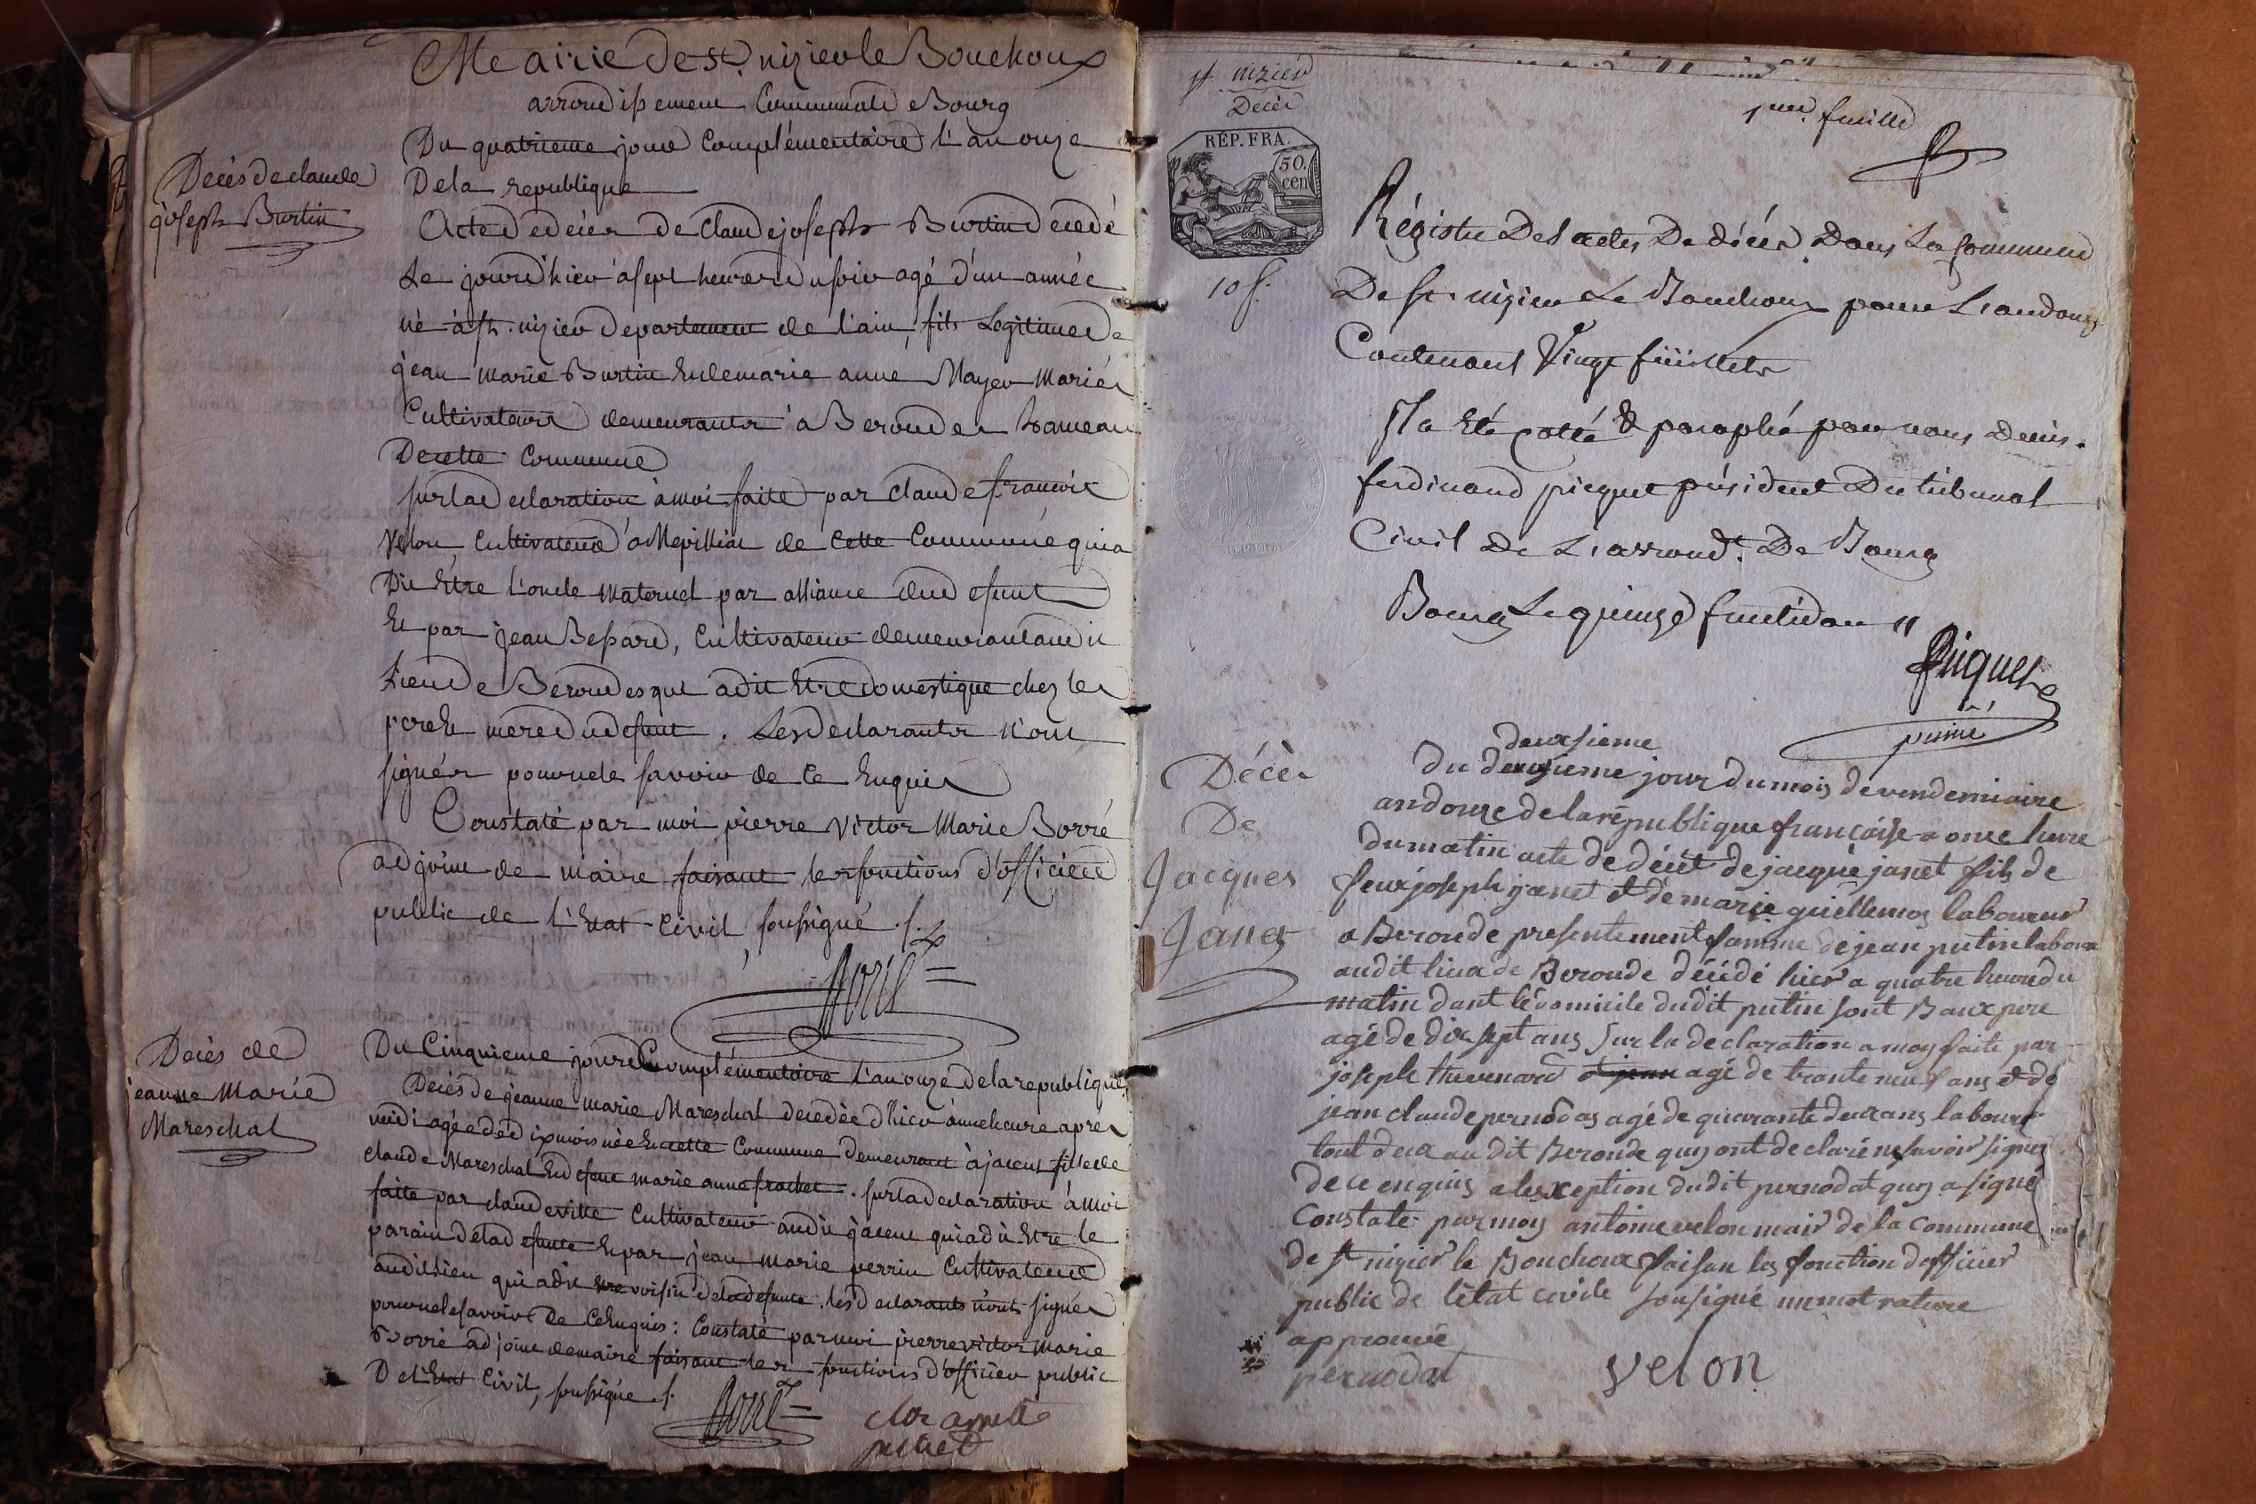 Meairie de St. nizier le Bouchoux
arrondissement Communal de Bourg
Du quatrieme jour Complémentaire l'an onze
De la republique
Décès de claude
joseph Burtin
Acte de décès de Claude joseph Burtin decedé
Le jourd'hier à sept heures du soir agé d'un année
né à st. nizier departement de l'ain, fils Legitime de
jean marie Burtin et de marie anne Mayer mariés
Cultivateurs demeurants à Berondes hameau
De cette Commune
sur la declaration à moi faite par Claude françois
Velon Cultivateur à Mepillia de cette Commune qui a
Dit Etre l'oncle maternel par alliance du defunt
Et par jean Bessard, Cultivateur demeurant audit
Lieu de Berondes qui a dit Etre domestique chez les
pere et mere du defunt. Les declarants n'ont
signés pour ne le savoir de ce Enquis
Constaté par moi pierre Victor Marie Borré
adjoint de maire faisant les fonctions d'officier
public de l'Etat Civil, soussigné ./.
Borré
Decès de
jeanne Marie
Mareschal
Du Cinquieme jour Complémentaire l'an onze de la republique
Decès de jeanne marie Mareschal decedée d'hier à une heure après
midi agée de dix mois née En cette Commune demeurant à jaceux fille de
claude Mareschal Et defunte marie anne frachet. sur la declaration à moi
faite par claude vitte Cultivateur audit jaceux qui a dit Etre le
parain de la defunte Et par jean marie perrin Cultivateur
audit lieu qui a dit Etre voisin de la defunte. les declarants n'ont signés
pour ne le savoir De ce Enquis: Constaté par moi pierre victor marie
Borré adjoint de maire faisant les fonctions d'officier public
De l'Etat Civil, soussigné ./.
Borré
st. nizier
Décès
1ere feuille
REP. FRA.
50.
cen
10 f.
Régistre Des actes De décès Dans La Commune
De st. nizier Le Bouchoux pour L'an douze
Contenant Vingt feüillets
Il a Eté cotté & paraphé par nous Denis.
ferdinand picquet président Du tribunal
Civil De L'arrondt. De Bourg
Bourg Le quinze fructidor 11
Picquet
Décès
De
Jacques
Janet
deuxsieme
du deuxieme jour du mois de vendemiaire
an douze de la république française a onze heure
du matin acte de décét de jacque janet fils de
feux joseph janet et de marie guillemos laboureur
a Beronde presentement famme de jean putin labour
audit lieux de Beronde décédé hier a quatre heure du
matin dant le domicile dudit putin sont Baux pere
agé de dix sept ans sur la declaration a moy faite par
joseph thevenard et jean agé de trante neuf ans et de
jean claude pernodas agé de quarante deux ans labour
tout deux audit Beronde quy ont declaré ne savoir signer
de ce enquis a lexception dudit pernodat quy a signé
Constaté par moy antoine velon mair de la commune
de st nizier le Bouchoux faisan les fonction dofficier
public de létat civile sousigné un mot rature
approuvé
pernodat
velon